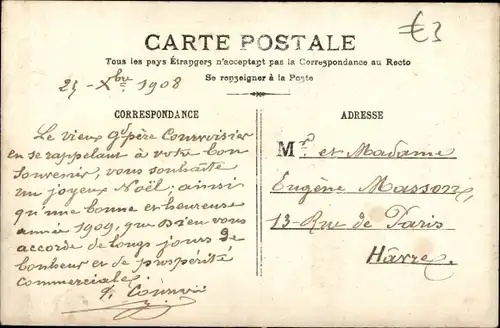 €3
CARTE POSTALE
Tous les pays Étrangers n'acceptant pas la Correspondance au Recto
Se renseigner à la Poste
25 - Xbre 1908
CORRESPONDANCE
Le vieux Gd père Courvoisier
en se rappelant à votre bon
Souvenir, vous souhaite
un joyeux Noël; ainsi
qu'une bonne et heureuse
année 1909, que Dieu vous
accorde de longs jours de
bonheur et de prospérité
commerciale.
ADRESSE
Mr et Madame
Eugène Masson,
13 - Rue de Paris
Hâvre.